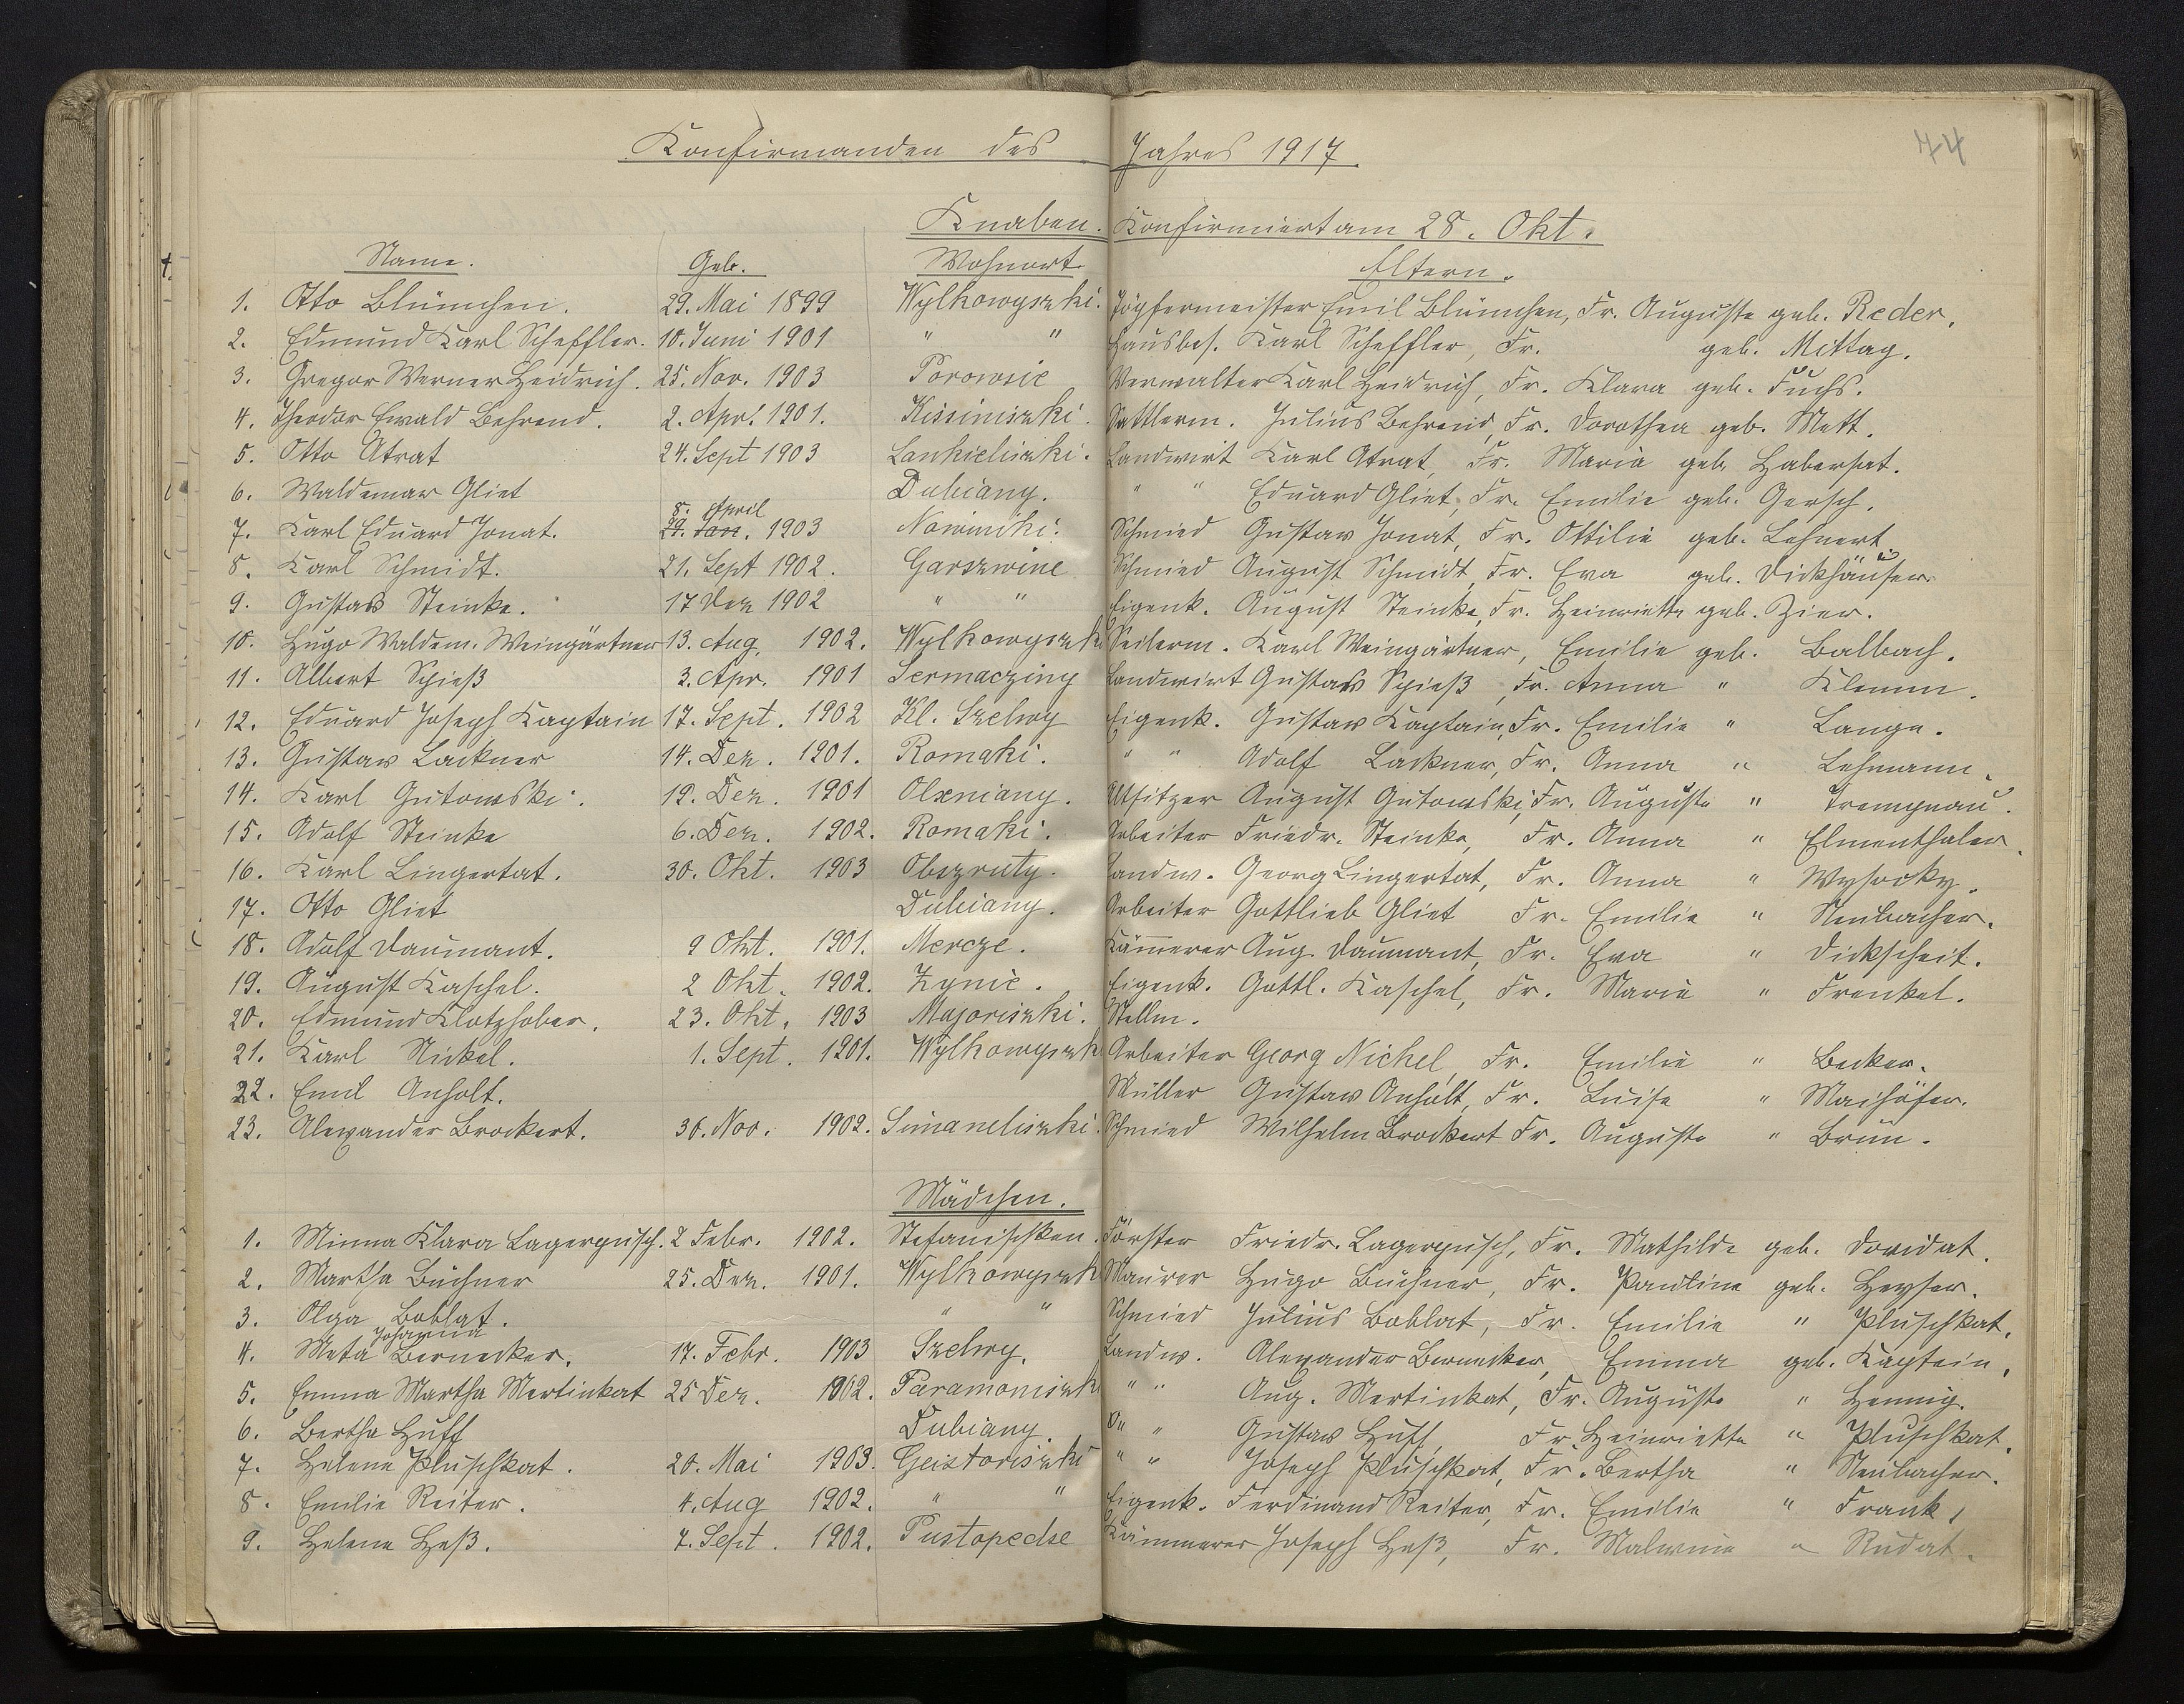 Konfirmanden des Jahres 1917.
44
Knaben. Konfirmiert am 28. Okt.
Name. Geb. Wohnort. Eltern.
1. Otto Blümchen. 29. Mai 1899 Wylkowyszki. Töpfermeister Emil Blümchen, Fr. Auguste geb. Reder.
2. Edmund Karl Scheffler. 10. Juni 1901 " " Hausbes. Karl Scheffler, Fr. geb. Mittag.
3. Gregor Werner Heidrich. 25. Nov. 1903 Porowsie Verwalter Karl Heidrich, Fr. Klara geb. Fuchs.
4. Theodor Ewald Behrend. 2. Apr. 1901. Kissiniszki. Sattlerm. Julius Behrend, Fr. Dorothea geb. Mett.
5. Otto Atrat 24. Sept 1903 Lankieliszki. Landwirt Karl Atrat, Fr. Maria geb. Habersat.
6. Waldemar Gliet Dubiany. " " Eduard Gliet, Fr. Emilie geb. Gersch.
8. April
7. Karl Eduard Jonat. 29. Jan. 1903 Nowiniki. Schmied Gustav Jonat, Fr. Ottilie geb. Lehnert
8. Karl Schmidt. 21. Sept 1902. Garszwine Schmied August Schmidt, Fr. Eva geb. Dickhäuser
9. Gustav Steinke. 17 Dez 1902 " " Eigenk. August Steinke, Fr. Heinriette geb. Zier.
10. Hugo Waldem. Weingärtner 13. Aug. 1902. Wylkowyszki Seilerm. Karl Weingärtner, Emilie geb. Balbach.
11. Albert Spieß 3. Apr. 1901 Sermacziny Landwirt Gustav Spieß, Fr. Anna " Klemm.
12. Eduard Joseph Kaptain 17. Sept. 1902 Kl. Szelwy Eigenk. Gustav Kaptain, Fr. Emilie " Lange.
13. Gustav Lackner 14. Dez. 1901. Romaki. " " Adolf Lackner, Fr. Anna " Lehmann.
14. Karl Gutowski. 19. Dez. 1901 Olxniany. Altsitzer August Gutowski, Fr. Auguste " Trempnau.
15. Adolf Steinke 6. Dez. 1902. Romaki. Arbeiter Friedr. Steinke, Fr. Anna " Elmenthaler.
16. Karl Lingertat. 30. Okt. 1903 Obszruty. Landw. Georg Lingertat, Fr. Anna " Wysocky.
17. Otto Gliet Dubiany. Arbeiter Gottlieb Gliet Fr. Emilie " Neubacher.
18. Adolf Daumant. 9 Okt. 1901. Mercze. Kämmerer Aug. Daumant, Fr. Eva " Dickscheit.
19. August Kaschel. 2 Okt. 1902. Zynie. Eigenk. Gottl. Kaschel, Fr. Marie " Frenkel.
20. Edmund Klotzhober. 23. Okt. 1903 Majoriszki. Stellm.
21. Karl Nickel. 1. Sept. 1901. Wylkowyszk Arbeiter Georg Nickel, Fr. Emilie " Becker.
22. Emil Anholt. Müller Gustav Anholt, Fr. Luise " Maihöfer.
23. Alexander Brockert. 30. Nov. 1902. Simaneliszki. Schmied Wilhelm Brockert Fr. Auguste " Brun.
Mädchen.
1. Minna Klara Lagerpusch. 2 Febr. 1902. Stefanischken. Förster Friedr. Lagerpusch, Fr. Mathilde geb. Dovidat.
2. Martha Büchner 25. Dez. 1901. Wylkowyszk Maurer Hugo Büchner, Fr. Pauline geb. Heyser.
3. Olga Boblat. " " Schmied Julius Boblat, Fr. Emilie " Pluschkat.
Johanna
4. Meta Bernecker. 17. Febr. 1903 Szelwy. Landw. Alexander Bernecker, Emma geb. Kaptein.
5. Emma Martha Mertinkat 25 Dez. 1902. Paramoniszk " " Aug. Mertinkat, Fr. Auguste " Hennig.
6. Bertha Huff Dubiany. " " Gustav Huff, Fr. Heinriette " Pluschkat.
7. Helene Pluschkat. 20. Mai 1903. Geistoriszki " " Joseph Pluschkat, Fr. Bertha " Neubacher.
8. Emilie Reiter. 4. Aug 1902. " " Eigenk. Ferdinand Reiter, Fr. Emilie " Frank.
9. Helene Heß. 7. Sept. 1902. Pustopedse Kämmerer Joseph Heß, Fr. Malwine " Rudat.